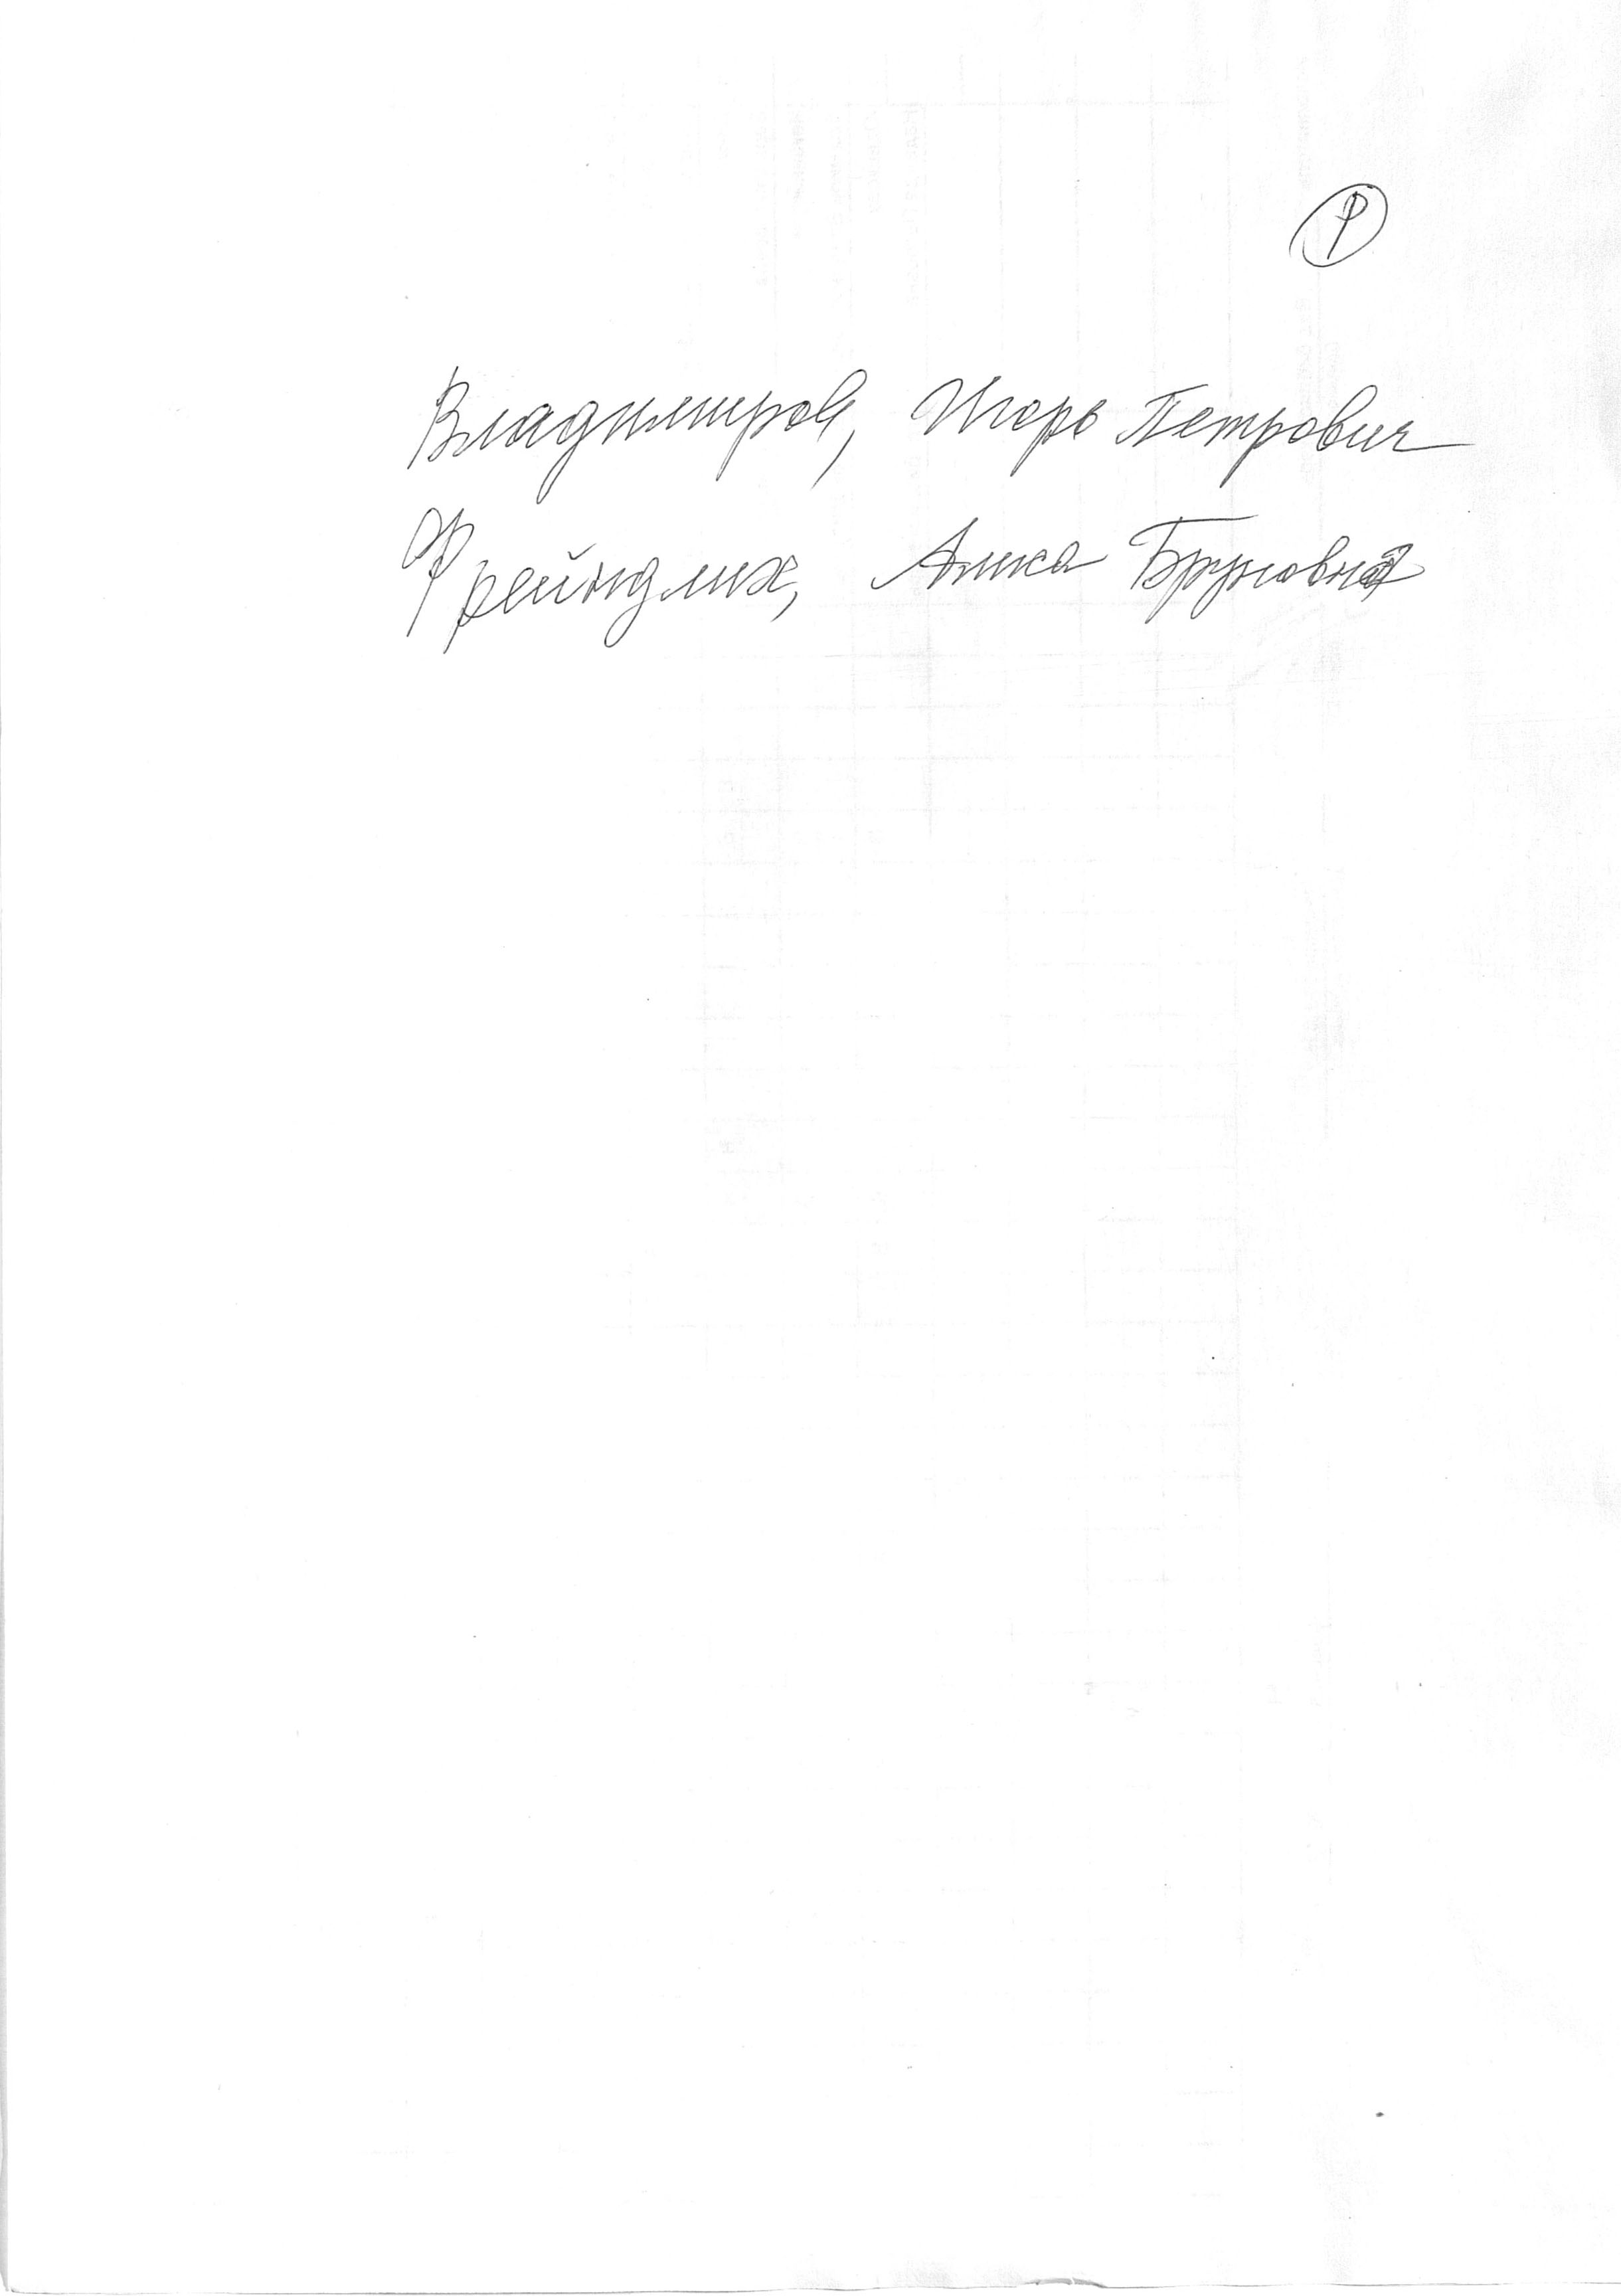 Р
Владимиров, Игорь Петрович
Фрейндлих, Алиса Бруновна